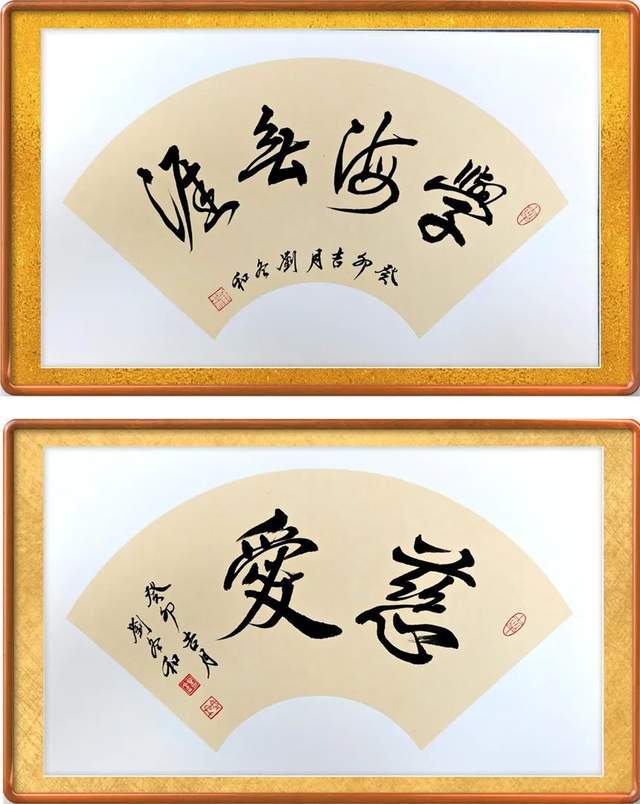 學海無涯
癸卯吉月劉和
慈愛
癸卯吉月
劉和